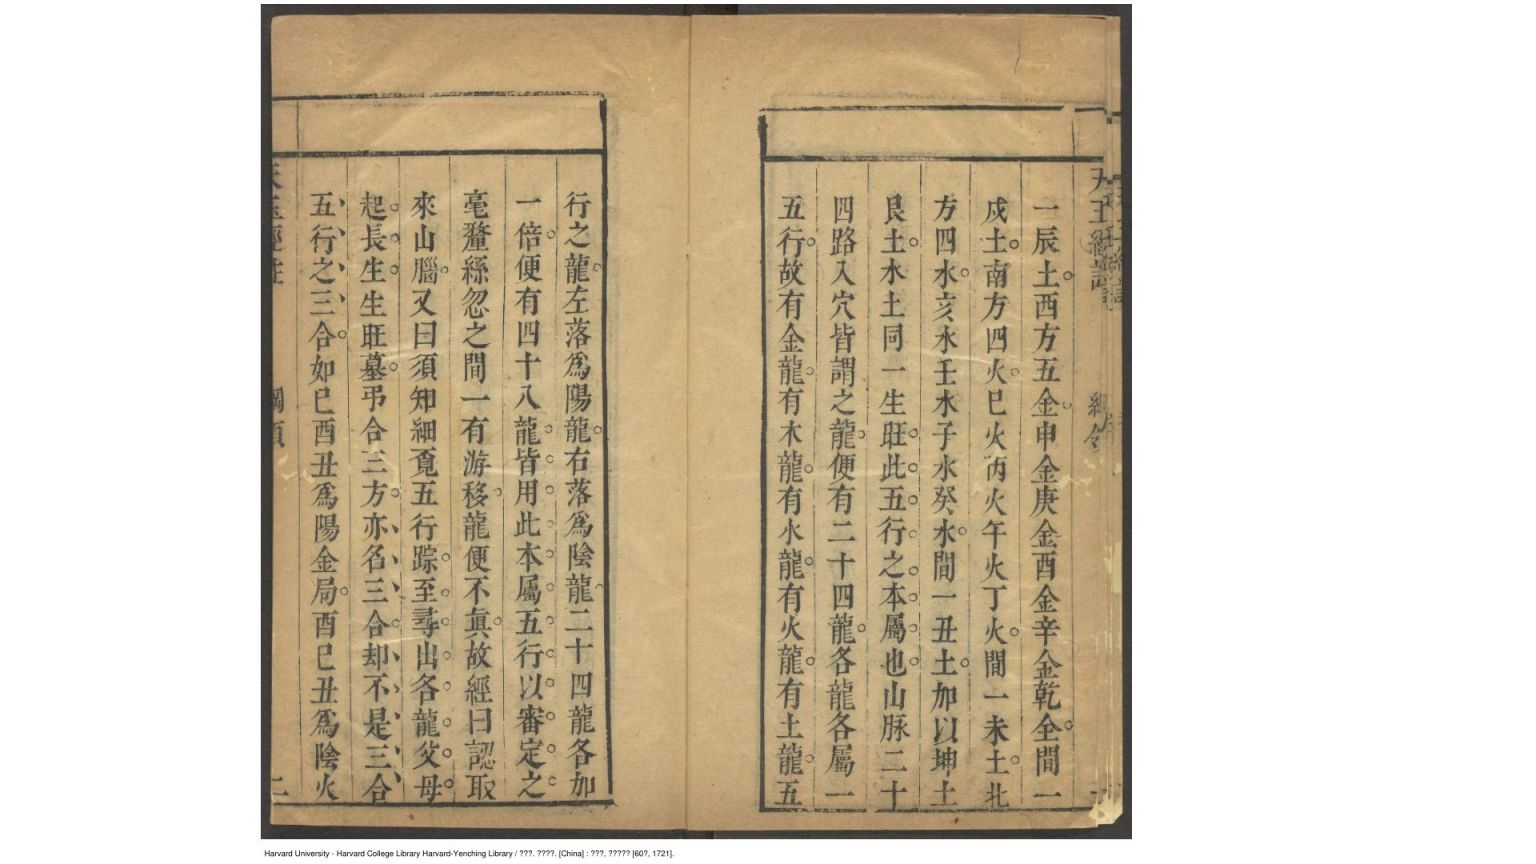 一辰土西方五金申金庚金酉金辛金乾金間一
戍土南方四火巳火丙火午火丁火間一未土北
方四水亥水壬水子水癸水間一丑土加以坤土
艮土水土同一生旺此五行之本屬也山脉二十
四路入穴皆謂之龍便有二十四龍各龍各屬一
五行故有金龍有木龍有水龍有火龍有土龍五
行之龍左落爲陽龍右落爲陰龍二十四龍各加
一倍便有四十八龍皆用此本屬五行以審定之
毫釐絲忽之間一有游移龍便不眞故經曰認取
來山腦又曰須知細覔五行踪至尋出各龍父母
起長生生旺墓弔合三方亦名三合却不是三合
五行之三合如巳酉丑爲陽金局酉巳丑爲陰火
二
Harvard University - Harvard College Library Harvard-Yenching Library / ???. ????. [China] : ???, ????? [60?, 1721].